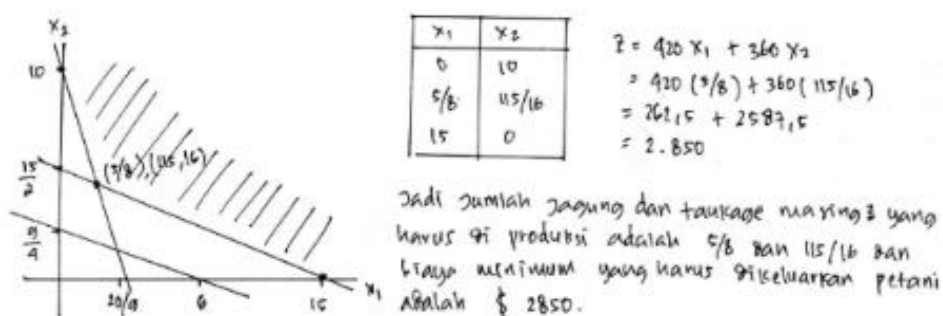 x₂
10
15/2
9/4
(5/8), (115,16)
20/9
6
15
x₁
x₁ x₂
0 10
5/8 115/16
15 0
Z = 420 x₁ + 360 x₂
= 420 (5/8) + 360 (115/16)
= 262,5 + 2587,5
= 2.850
Jadi Jumlah Jagung dan taukage masing2 yang
harus di produksi adalah 5/8 dan 115/16 dan
biaya minimum yang harus dikeluarkan petani
adalah $ 2850.